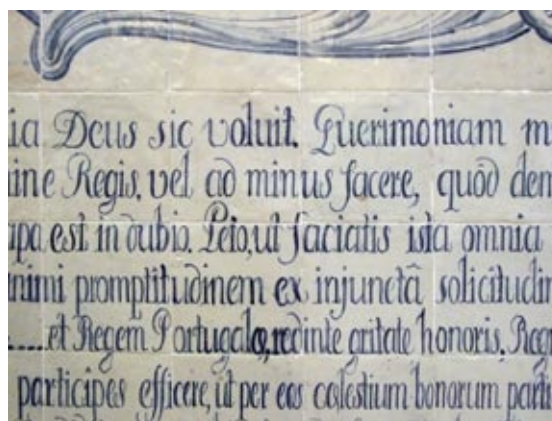 ia Deus sic voluit. Querimoniam m
ine Regis, vel ad minus facere, quòd dem
ipa est in dubio. Peto, ut faciatis ista omnia
nimi promptitudinem ex injunctâ solicitudin
.....et Regem Portugalę, redinte gritate honoris. Reg
participes efficere, ut per eos cœlestium bonorum parti